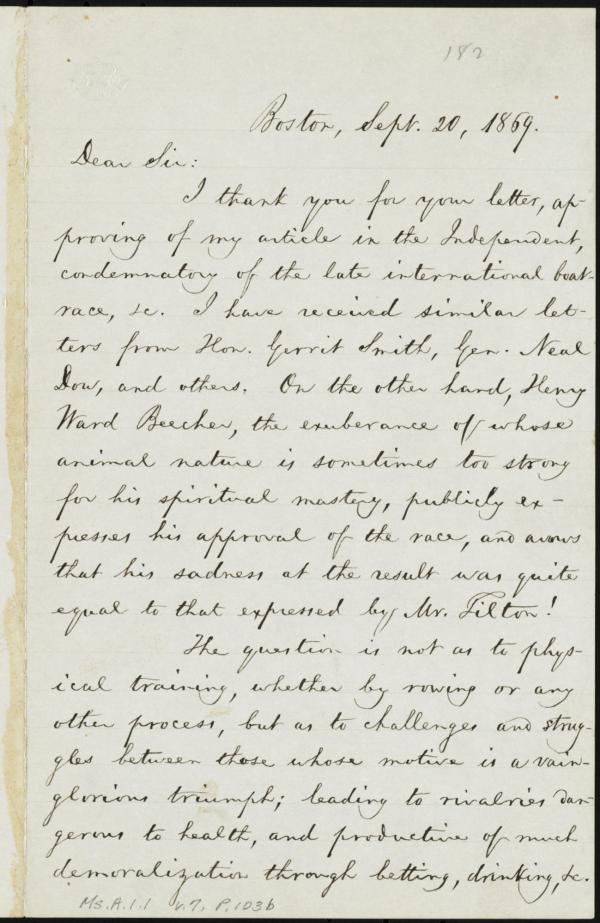 182
Boston, Sept. 20, 1869.
Dear Sir:
I thank you for your letter, ap-
proving of my article in the Independent,
condemnatory of the late international boat-
race, &c. I have received similar let-
ters from Hon. Gerrit Smith, Gen. Neal
Dow, and others. On the other hand, Henry
Ward Beecher, the exuberance of whose
animal nature is sometimes too strong
for his spiritual mastery, publicly ex-
presses his approval of the race, and avows
that his sadness at the result was quite
equal to that expressed by Mr. Tilton!
The question is not as to phys-
ical training, whether by rowing or any
other process, but as to challenges and strug-
gles between those whose motive is a vain-
glorious triumph; leading to rivalries dan-
gerous to health, and productive of much
demoralization through betting, drinking, &c.
Ms.A.1.1 v.7, P.103b